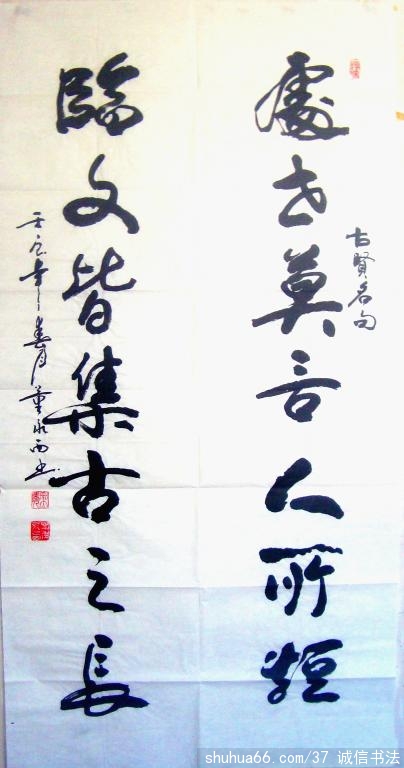 處世莫言人所短
古賢名句
臨文皆集古之長
壬辰年春月董永西书
shuhua66.com/37 诚信书法